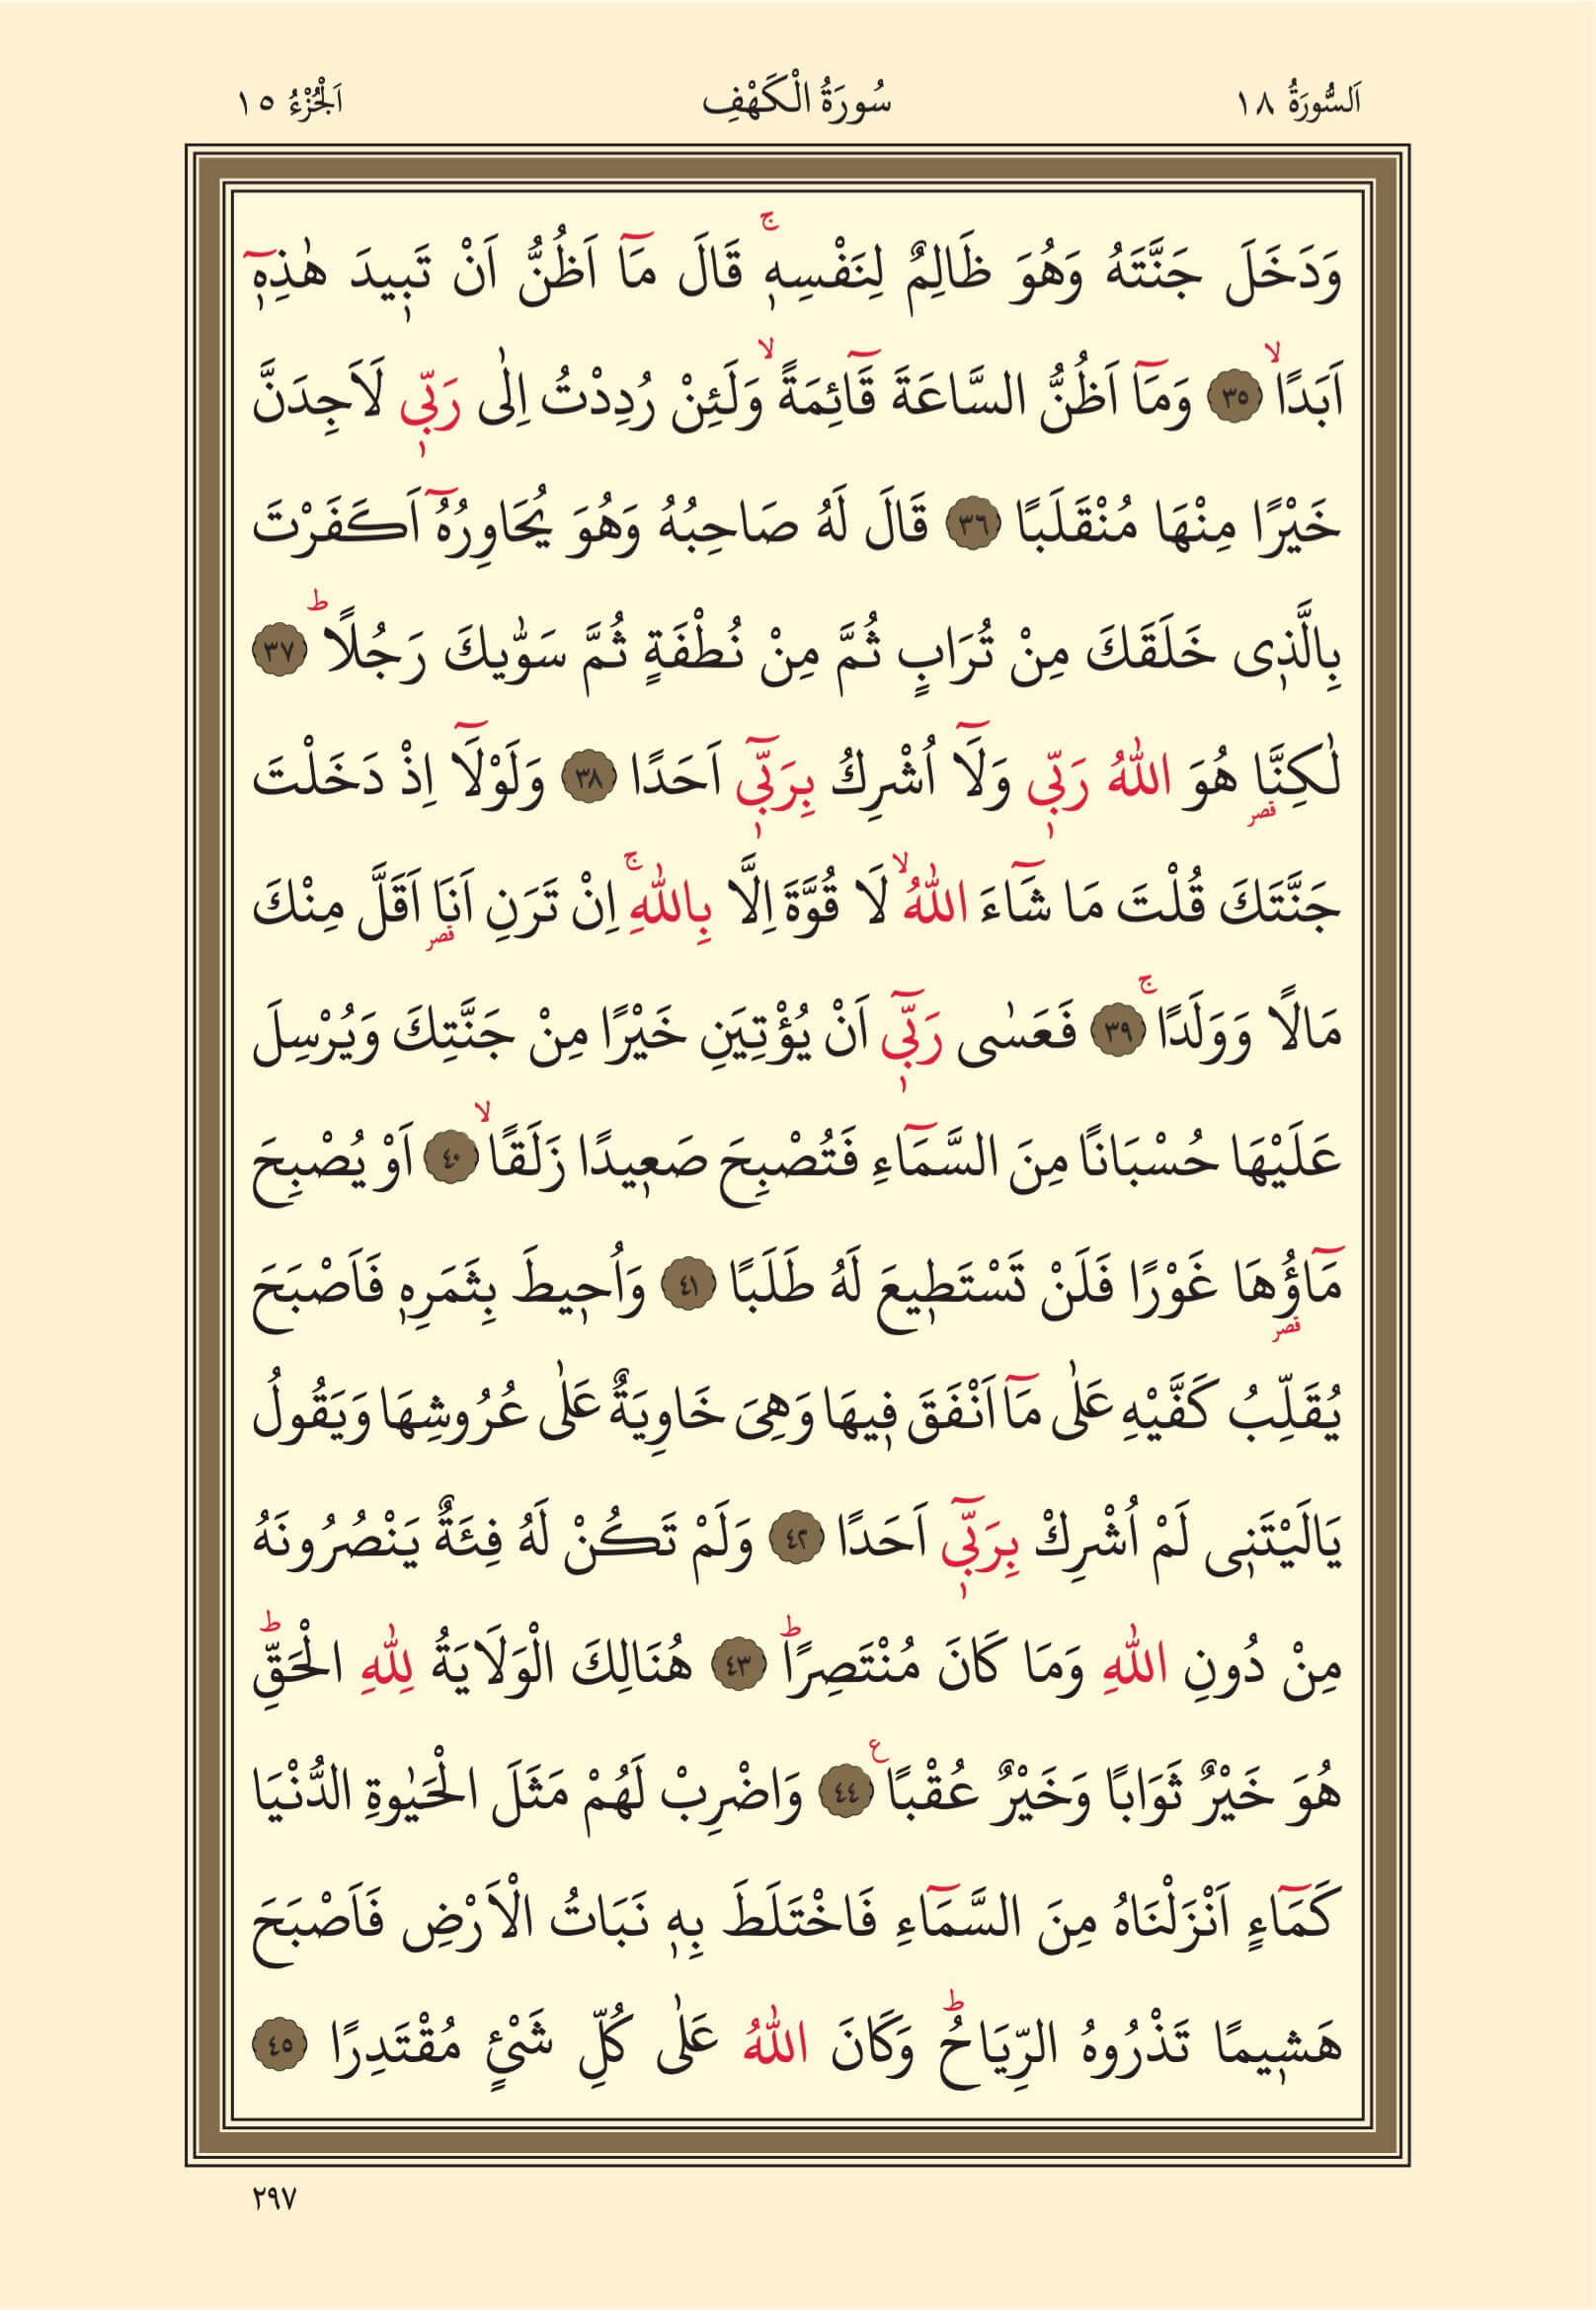 اَلسُّورَةُ ١٨
سُورَةُ الْكَهْفِ
اَلْجُزْءُ ١٥
وَدَخَلَ جَنَّتَهُ وَهُوَ ظَالِمٌ لِنَفْسِهٖۚ قَالَ مَٓا اَظُنُّ اَنْ تَبٖيدَ هٰذِهٖٓ
اَبَدًاۙ ٣٥ وَمَٓا اَظُنُّ السَّاعَةَ قَٓائِمَةًۙ وَلَئِنْ رُدِدْتُ اِلٰى رَبّٖى لَاَجِدَنَّ
خَيْرًا مِنْهَا مُنْقَلَبًا ٣٦ قَالَ لَهُ صَاحِبُهُ وَهُوَ يُحَاوِرُهُٓ اَكَفَرْتَ
بِالَّذٖى خَلَقَكَ مِنْ تُرَابٍ ثُمَّ مِنْ نُطْفَةٍ ثُمَّ سَوّٰيكَ رَجُلًاؕ ٣٧
لٰكِنَّا۬ هُوَ اللّٰهُ رَبّٖى وَلَٓا اُشْرِكُ بِرَبّٖٓى اَحَدًا ٣٨ وَلَوْلَٓا اِذْ دَخَلْتَ
جَنَّتَكَ قُلْتَ مَا شَٓاءَ اللّٰهُۙ لَا قُوَّةَ اِلَّا بِاللّٰهِۚ اِنْ تَرَنِ اَنَا۬ اَقَلَّ مِنْكَ
مَالًا وَوَلَدًاۚ ٣٩ فَعَسٰى رَبّٖٓى اَنْ يُؤْتِيَنِ خَيْرًا مِنْ جَنَّتِكَ وَيُرْسِلَ
عَلَيْهَا حُسْبَانًا مِنَ السَّمَٓاءِ فَتُصْبِحَ صَعٖيدًا زَلَقًاۙ ٤٠ اَوْ يُصْبِحَ
مَٓاؤُ۬هَا غَوْرًا فَلَنْ تَسْتَطٖيعَ لَهُ طَلَبًا ٤١ وَاُحٖيطَ بِثَمَرِهٖ فَاَصْبَحَ
يُقَلِّبُ كَفَّيْهِ عَلٰى مَٓا اَنْفَقَ فٖيهَا وَهِىَ خَاوِيَةٌ عَلٰى عُرُوشِهَا وَيَقُولُ
يَالَيْتَنٖى لَمْ اُشْرِكْ بِرَبّٖٓى اَحَدًا ٤٢ وَلَمْ تَكُنْ لَهُ فِئَةٌ يَنْصُرُونَهُ
مِنْ دُونِ اللّٰهِ وَمَا كَانَ مُنْتَصِرًاؕ ٤٣ هُنَالِكَ الْوَلَايَةُ لِلّٰهِ الْحَقِّؕ
هُوَ خَيْرٌ ثَوَابًا وَخَيْرٌ عُقْبًاࣖ ٤٤ وَاضْرِبْ لَهُمْ مَثَلَ الْحَيٰوةِ الدُّنْيَا
كَمَٓاءٍ اَنْزَلْنَاهُ مِنَ السَّمَٓاءِ فَاخْتَلَطَ بِهٖ نَبَاتُ الْاَرْضِ فَاَصْبَحَ
هَشٖيمًا تَذْرُوهُ الرِّيَاحُؕ وَكَانَ اللّٰهُ عَلٰى كُلِّ شَىْءٍ مُقْتَدِرًا ٤٥
٢٩٧